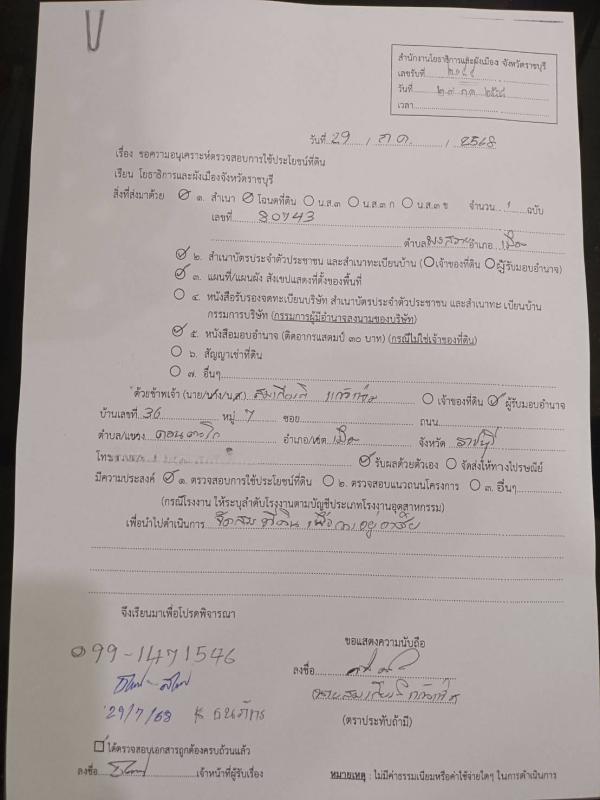 สำนักงานโยธาธิการและผังเมือง จังหวัดราชบุรี
เลขรับที่
วันที่ ๒๙ ก.ค. ๒๕๖๘
เวลา
วันที่ 29 / ก.ค. / 2568
เรื่อง ขอความอนุเคราะห์ตรวจสอบการใช้ประโยชน์ที่ดิน
เรียน โยธาธิการและผังเมืองจังหวัดราชบุรี
สิ่งที่ส่งมาด้วย ๑. สำเนา โฉนดที่ดิน น.ส.๓ น.ส.๓ ก น.ส.๓ ข จำนวน 1 ฉบับ
เลขที่
ตำบล อำเภอ เมือง
๒. สำเนาบัตรประจำตัวประชาชน และสำเนาทะเบียนบ้าน (เจ้าของที่ดิน ผู้รับมอบอำนาจ)
๓. แผนที่/แผนผัง สังเขปแสดงที่ตั้งของพื้นที่
๔. หนังสือรับรองจดทะเบียนบริษัท สำเนาบัตรประจำตัวประชาชน และสำเนาทะเบียนบ้าน
กรรมการบริษัท (กรรมการผู้มีอำนาจลงนามของบริษัท)
๕. หนังสือมอบอำนาจ (ติดอากรแสตมป์ ๓๐ บาท) (กรณีไม่ใช่เจ้าของที่ดิน)
๖. สัญญาเช่าที่ดิน
๗. อื่นๆ
ด้วยข้าพเจ้า (นาย/นาง/น.ส.) สมเกียรติ เจ้าของที่ดิน ผู้รับมอบอำนาจ
บ้านเลขที่ 36 หมู่ 7 ซอย ถนน
ตำบล/แขวง ดอนตะโก อำเภอ/เขต เมือง จังหวัด ราชบุรี
โทร รับผลด้วยตัวเอง จัดส่งให้ทางไปรษณีย์
มีความประสงค์ ๑. ตรวจสอบการใช้ประโยชน์ที่ดิน ๒. ตรวจสอบแนวถนนโครงการ ๓. อื่นๆ
(กรณีโรงงาน ให้ระบุลำดับโรงงานตามบัญชีประเภทโรงงานอุตสาหกรรม)
เพื่อนำไปดำเนินการ จัดสรรที่ดินเพื่อการอยู่อาศัย
จึงเรียนมาเพื่อโปรดพิจารณา
ขอแสดงความนับถือ
099-1471546
ลงชื่อ
29/7/68 K ธนภัทร
(ตราประทับถ้ามี)
ได้ตรวจสอบเอกสารถูกต้องครบถ้วนแล้ว
ลงชื่อ เจ้าหน้าที่ผู้รับเรื่อง
หมายเหตุ : ไม่มีค่าธรรมเนียมหรือค่าใช้จ่ายใดๆ ในการดำเนินการ